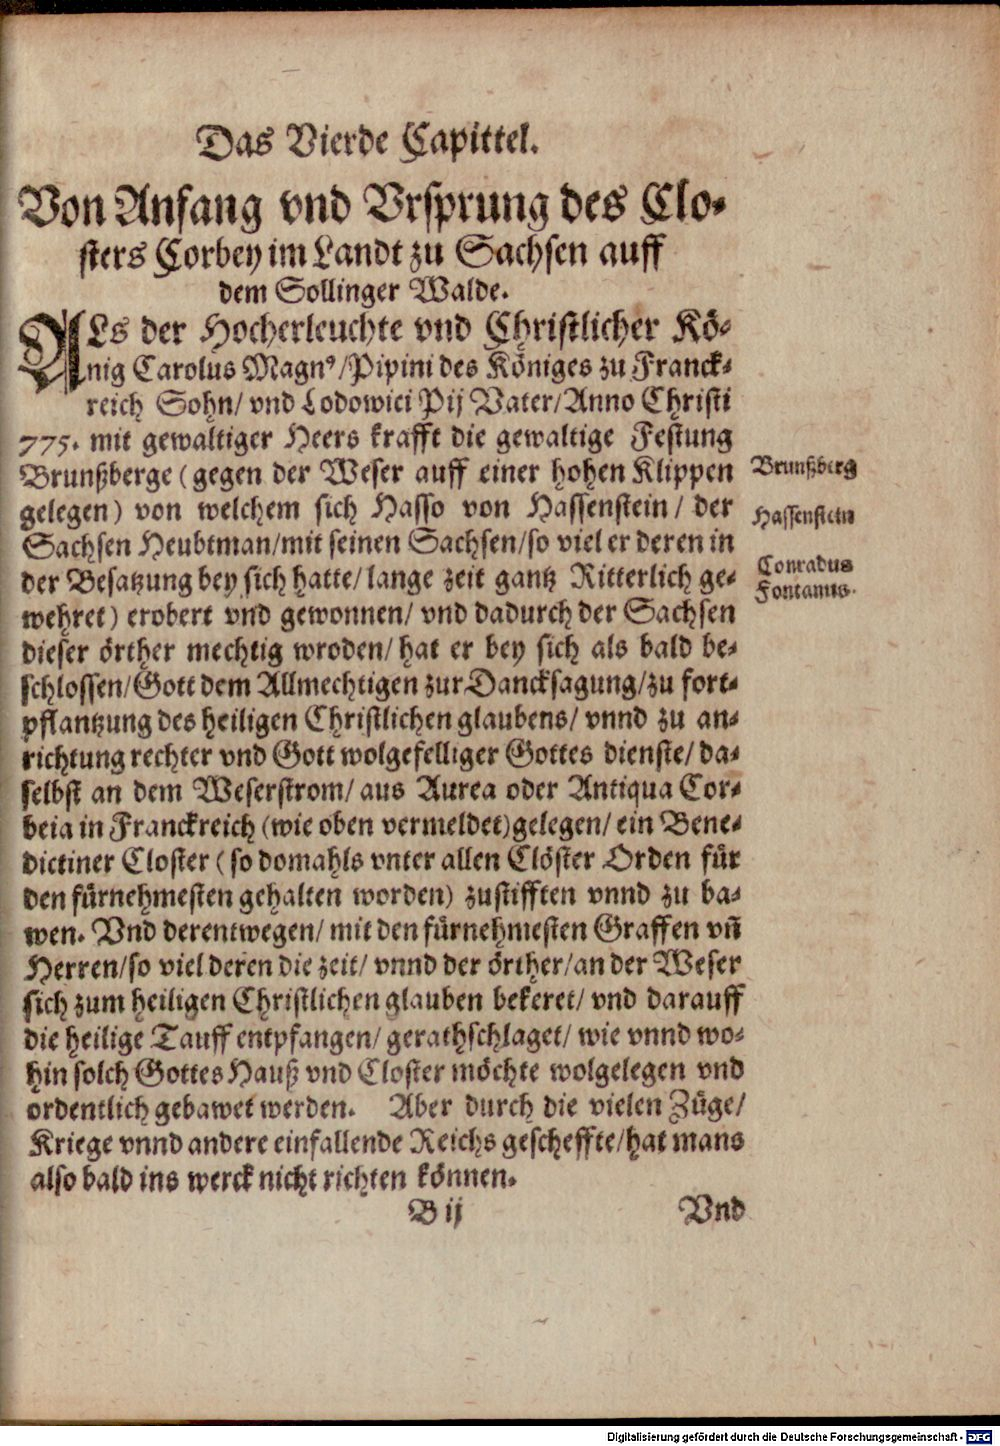 Das Vierde Capittel.
Von Anfang vnd Vrsprung des Clo-
sters Corbey im Landt zu Sachsen auff
dem Sollinger Walde.
ALs der Hocherleuchte vnd Christlicher Kö-
nig Carolus Magnꝰ/Pipini des Königes zu Franck-
reich Sohn/ vnd Lodowici Pij Vater/Anno Christi
775. mit gewaltiger Heers krafft die gewaltige Festung
Brunßberge (gegen der Weser auff einer hohen Klippen
Brunßberg
gelegen) von welchem sich Hasso von Hassenstein/ der
Hassenstein
Sachsen Heubtman/mit seinen Sachsen/so viel er deren in
der Besatzung bey sich hatte/lange zeit gantz Ritterlich ge-
Conradus
Fontanus.
wehret) erobert vnd gewonnen/ vnd dadurch der Sachsen
dieser örther mechtig wroden/ hat er bey sich als bald be-
schlossen/Gott dem Allmechtigen zur Dancksagung/zu fort-
pflantzung des heiligen Christlichen glaubens/ vnnd zu an-
richtung rechter vnd Gott wolgefelliger Gottes dienste/ da-
selbst an dem Weserstrom/ aus Aurea oder Antiqua Cor-
beia in Franckreich (wie oben vermeldet)gelegen/ ein Bene-
dictiner Closter (so domahls vnter allen Clöster Orden für
den fürnehmesten gehalten worden) zustifften vnnd zu ba-
wen. Vnd derentwegen/ mit den fürnehmesten Graffen vñ
Herren/so viel deren die zeit/ vnnd der örther/an der Weser
sich zum heiligen Christlichen glauben bekeret/ vnd darauff
die heilige Tauff entpfangen/ gerathschlaget/ wie vnnd wo-
hin solch Gottes Hauß vnd Closter möchte wolgelegen vnd
ordentlich gebawet werden. Aber durch die vielen Züge/
Kriege vnnd andere einfallende Reichs gescheffte/hat mans
also bald ins werck nicht richten können.
B ij Vnd
Digitalisierung gefördert durch die Deutsche Forschungsgemeinschaft - DFG